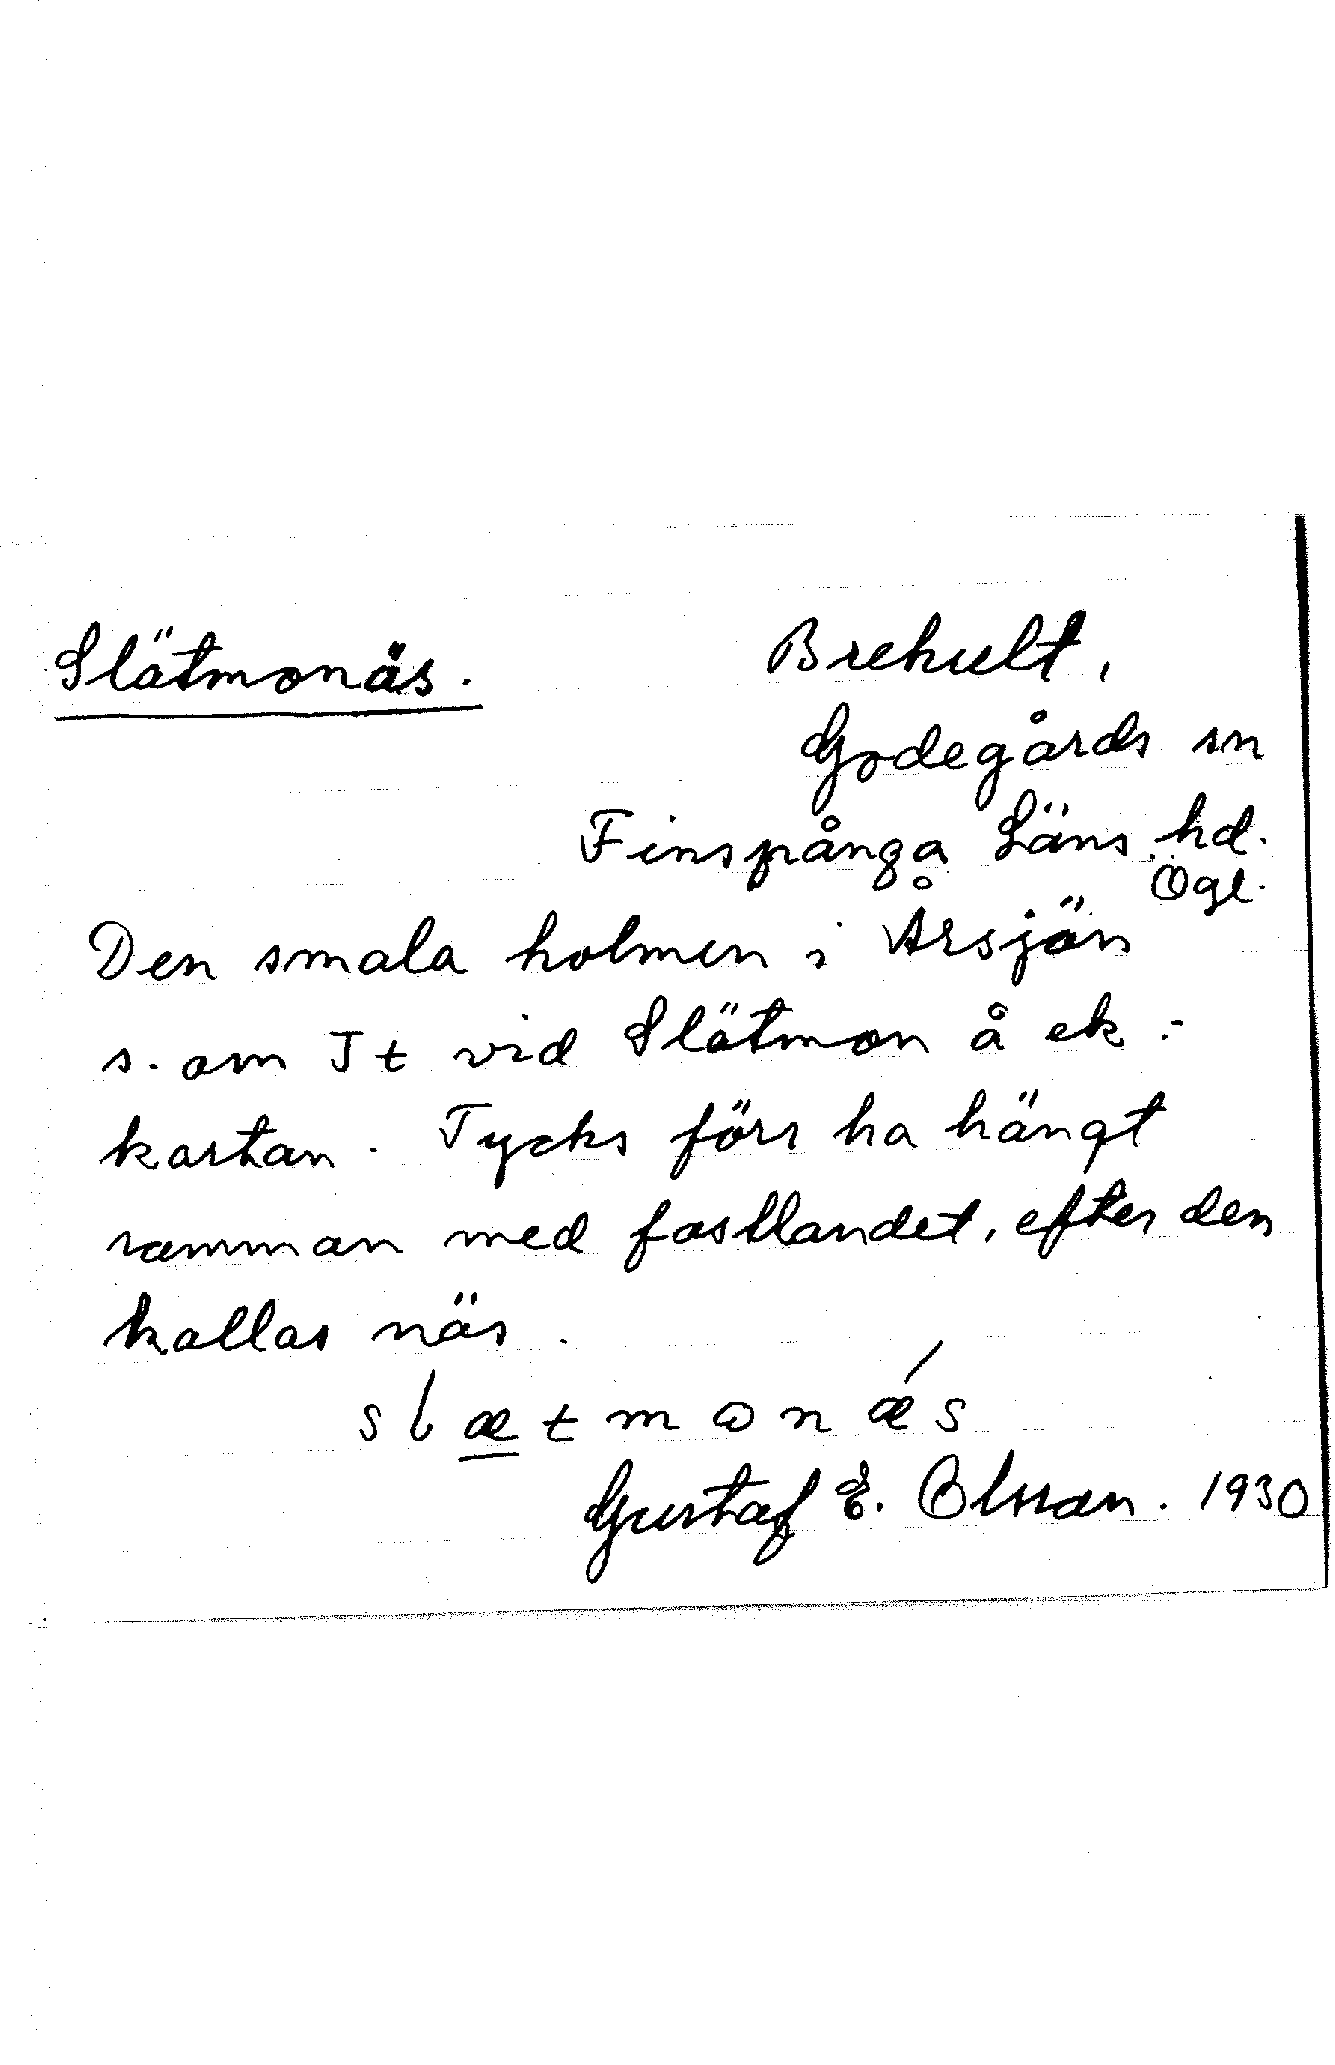 Slätmonäs.
Brehult,
Godegårds sn
Finspånga Läns hd.
Ögl.
Den smala holmen i Årsjön
s. om Jt vid Slätmon å ek.-
kartan. Tycks förr ha hängt
samman med fastlandet, efter den
kallas näs.
slætmonǽs
Gustaf E. Olsson. 1930